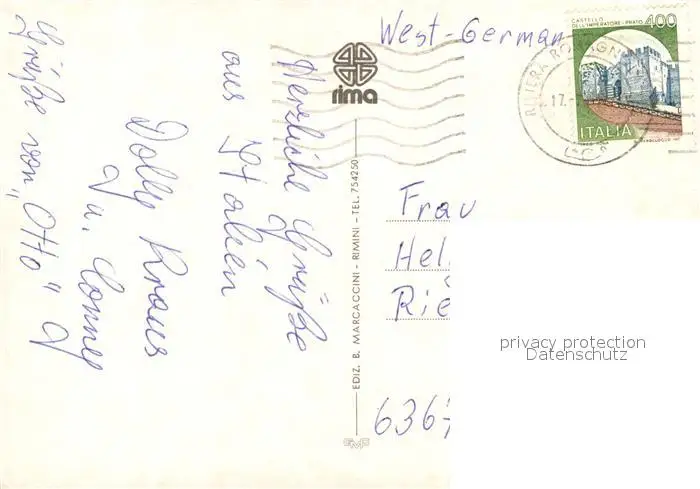 Herzliche Grüße
aus Italien
Dolly Kraus
u. Conny
Grüße von „Otto"
West-German
rima
EDIZ. B. MARCACCINI - RIMINI - TEL. 754250
CASTELLO
DELL'IMPERATORE - PRATO
400
ITALIA
RIVIERA ROMAGN
17.
Frau
Hel
Rie
6367
privacy protection
Datenschutz